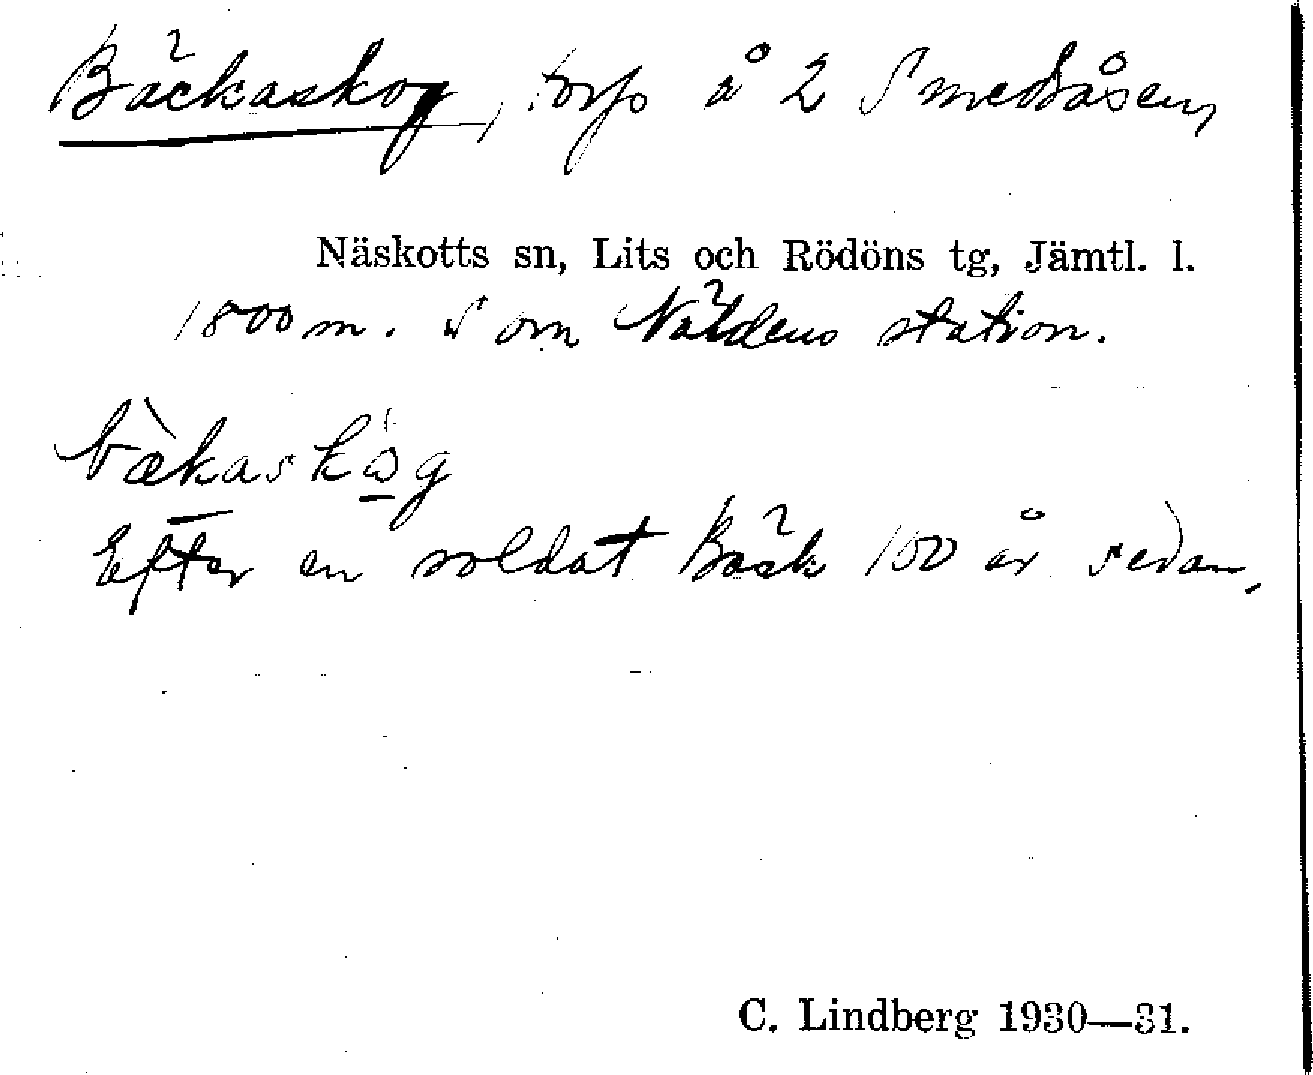 Bäckaskog, torp å 2 Smedsåsen,
Näskotts sn, Lits och Rödöns tg, Jämtl. l.
1800 m. S om Näldens station.
bæ̀kaskɷg
Efter en soldat Bäck 100 år sedan.
C. Lindberg 1930—31.